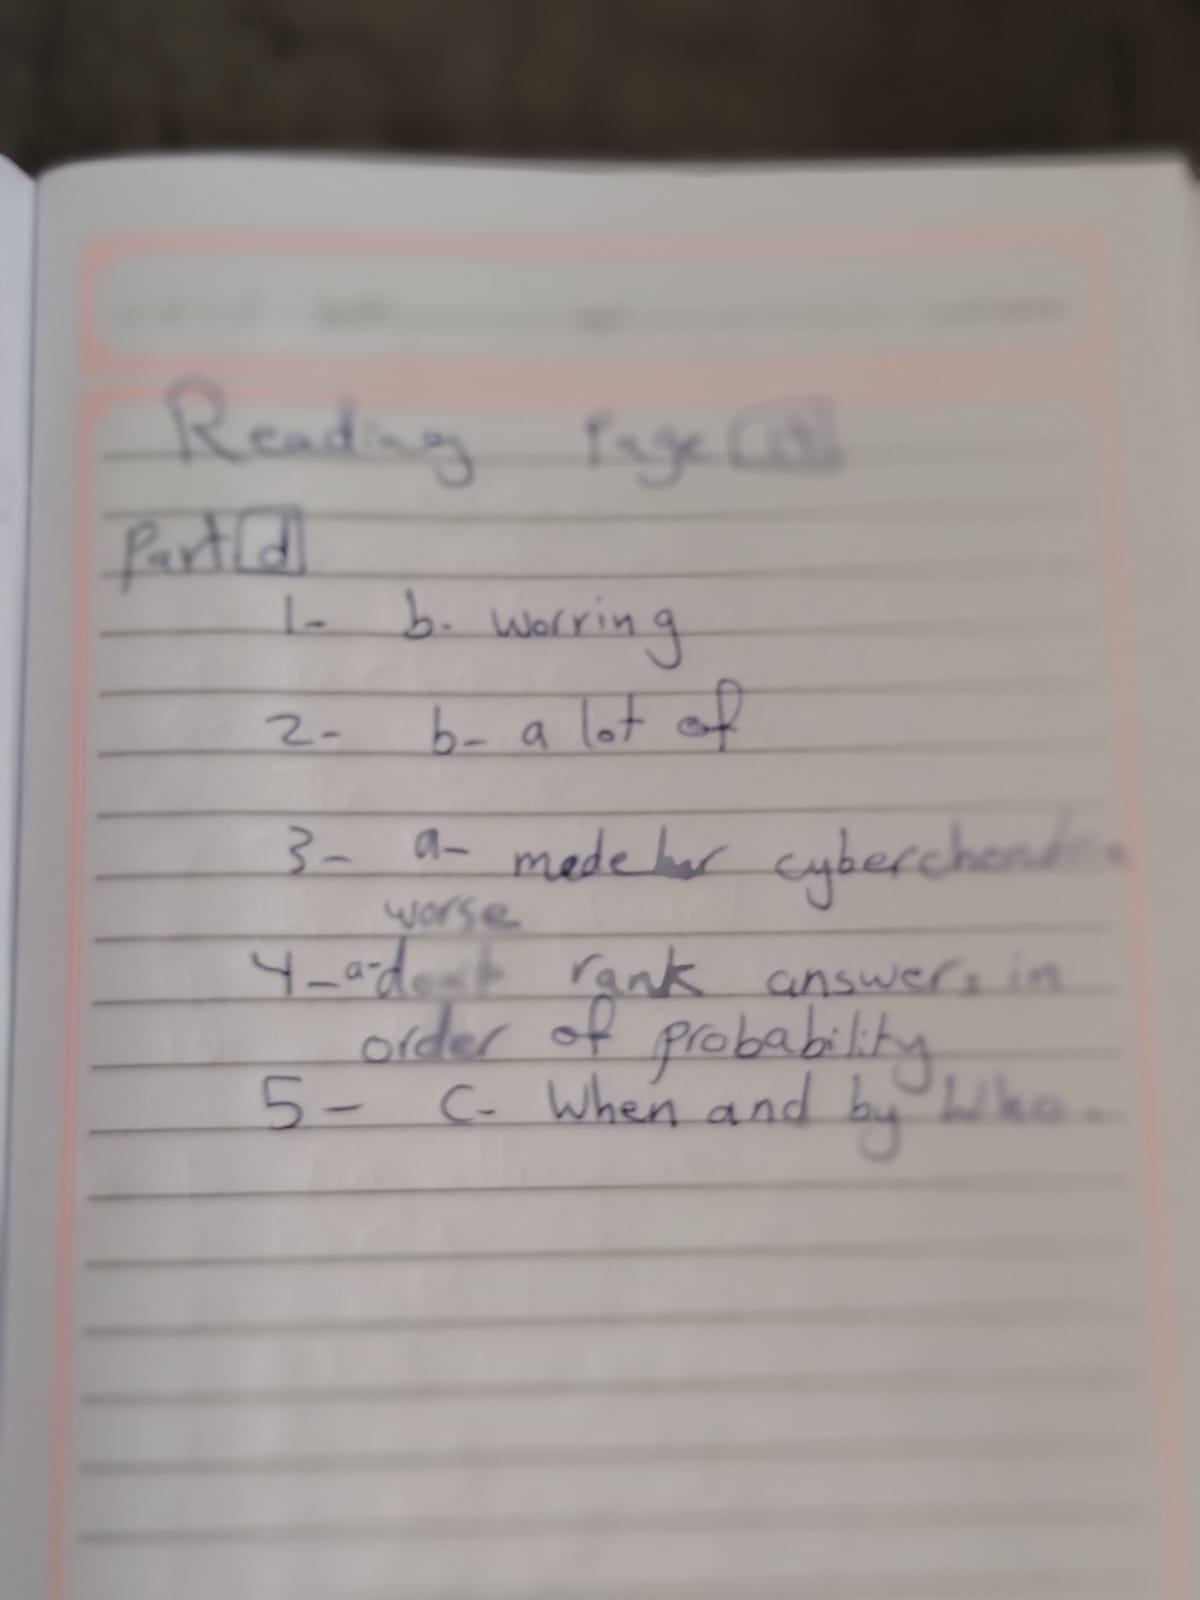 Reading Page
Part d
1- b- worring
2- b- a lot of
3- a- made her cyberchondria
worse
4- a- don't rank answers in
order of probability
5- C- When and by who.